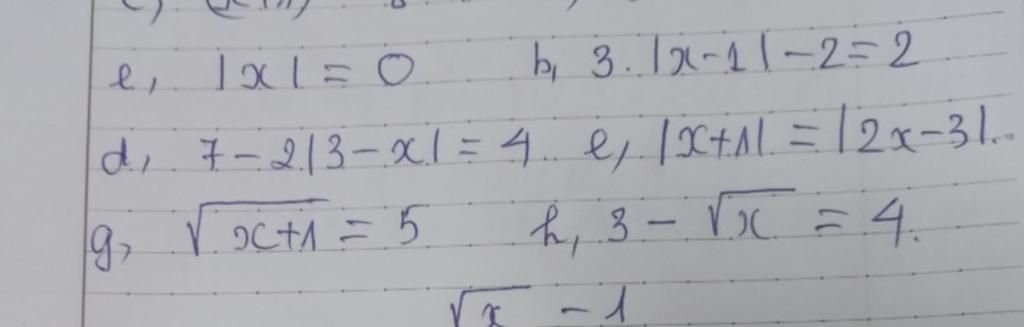 e, |x| = 0 b, 3. |x-1| - 2 = 2
d, 7 - 2|3 - x| = 4. e, |x+1| = |2x-3|...
g, √(x+1) = 5 h, 3 - √x = 4.
√x - 1